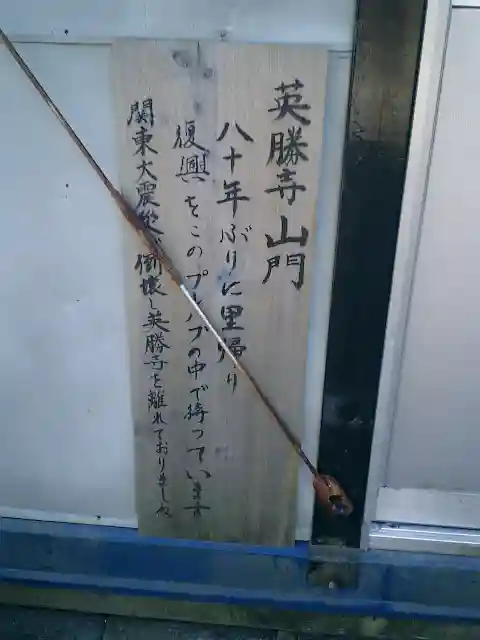 英勝寺山門
八十年ぶりに里帰り
復興をこのプレハブの中で待っています
関東大震災で倒壊し英勝寺を離れておりました